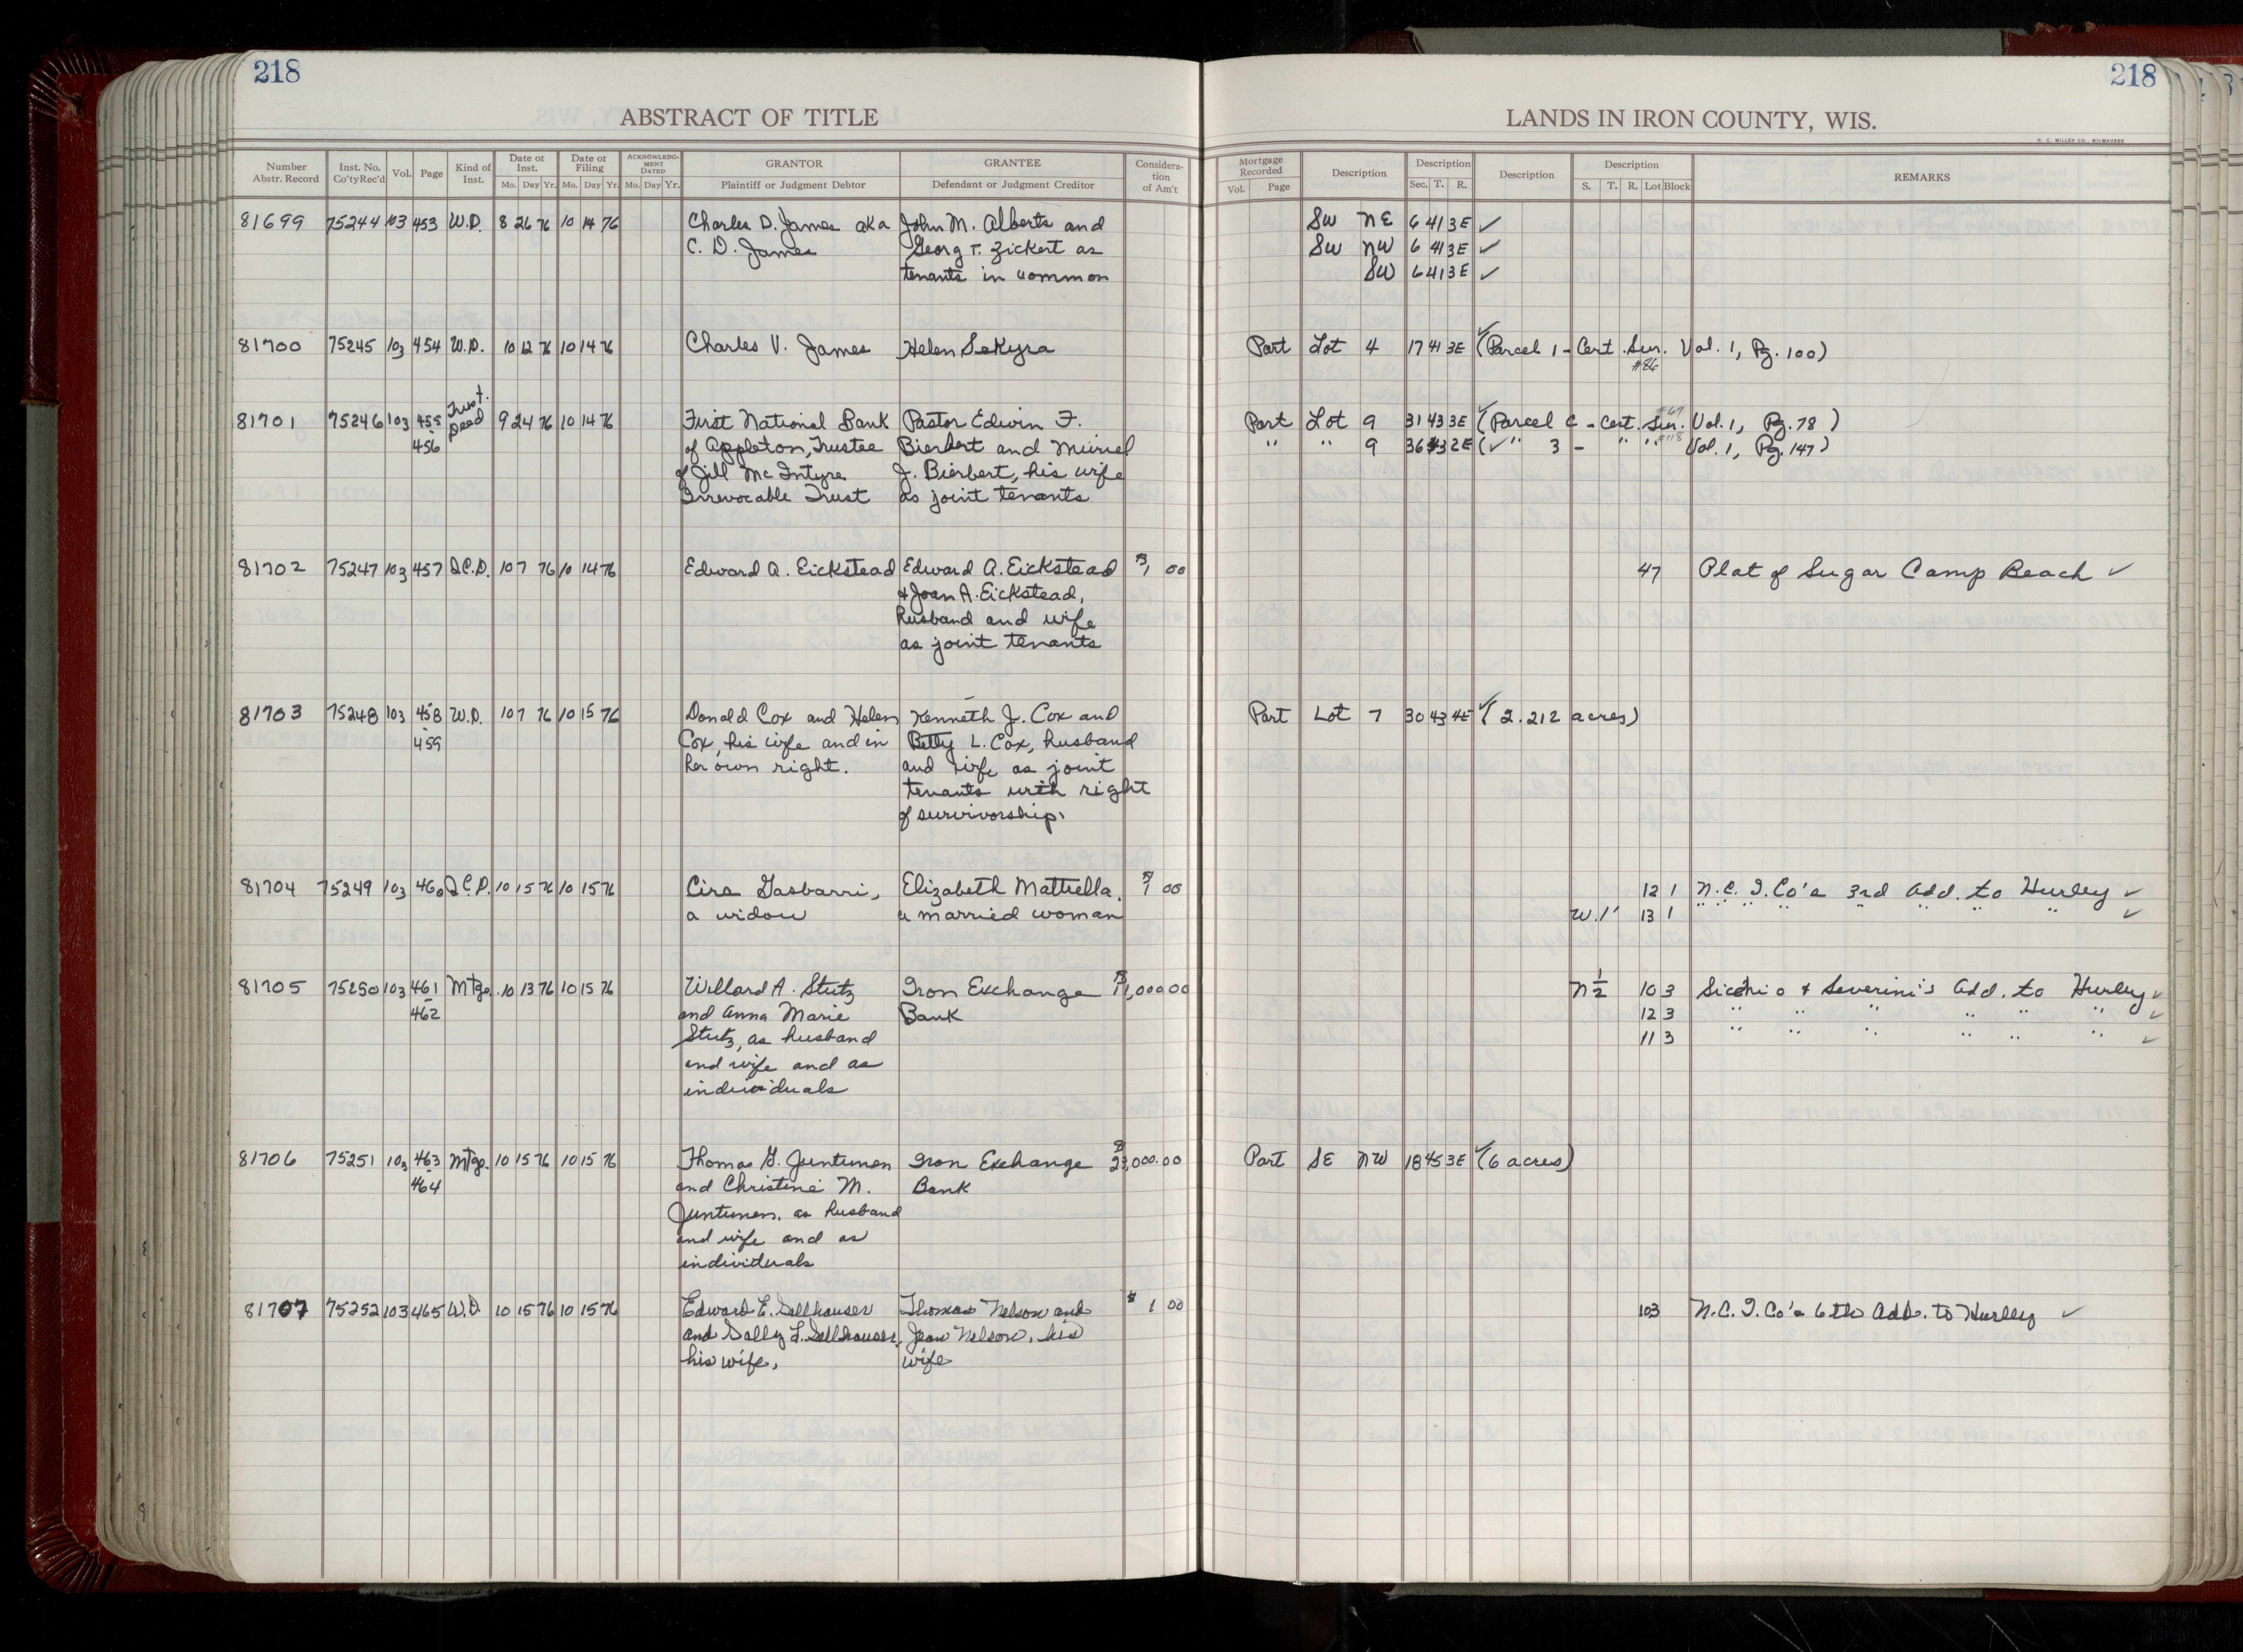 218
ABSTRACT OF TITLE
Number Abstr. Record | Inst. No. Co'ty Rec'd | Vol. | Page | Kind of Inst. | Date of Inst. Mo. Day Yr. | Date of Filing Mo. Day Yr. | ACKNOWLEDG-MENT DATED Mo. Day Yr. | GRANTOR Plaintiff or Judgment Debtor | GRANTEE Defendant or Judgment Creditor | Considera-tion of Am't
81699 75244 103 453 W.D. 8 26 76 10 14 76 Charles D. James aka John M. Alberts and
C. D. James Georg T. Zickert as
tenants in common
81700 75245 103 454 W.D. 10 12 76 10 14 76 Charles V. James Helen Sekyra
81701 75246 103 455-456 Trust. Deed 9 24 76 10 14 76 First National Bank Pastor Edwin F.
of Appleton, Trustee Bierbert and Muriel
of Jill McIntyre J. Bierbert, his wife
Irrevocable Trust as joint tenants
81702 75247 103 457 Q.C.D. 10 7 76 10 14 76 Edward A. Eickstead Edward A. Eickstead $1 00
& Joan A. Eickstead,
husband and wife
as joint tenants
81703 75248 103 458-459 W.D. 10 7 76 10 15 76 Donald Cox and Helen Kenneth J. Cox and
Cox, his wife and in Betty L. Cox, husband
her own right. and wife as joint
tenants with right
of survivorship.
81704 75249 103 460 Q.C.D. 10 15 76 10 15 76 Gasbarri, Elizabeth Mattrella, $1 00
a widow a married woman
81705 75250 103 461-462 Mtge. 10 13 76 10 15 76 Willard A. Stutz Iron Exchange $11,000.00
and Anna Marie Bank
Stutz, as husband
and wife and as
individuals
81706 75251 103 463-464 Mtge. 10 15 76 10 15 76 Thomas G. Juntunen Iron Exchange $23,000.00
and Christine M. Bank
Juntunen, as husband
and wife and as
individuals
81707 75252 103 465 W.D. 10 15 76 10 15 76 Edward E. Sellhauser Thomas Nelson and $1 00
and Sally L. Sellhauser, Jean Nelson, his
his wife, wife
218
LANDS IN IRON COUNTY, WIS.
H. C. MILLER CO., MILWAUKEE
Mortgage Recorded Vol. Page | Description | Description Sec. T. R. | Description | Description S. T. R. Lot Block | REMARKS
SW NE 6 41 3E ✓
SW NW 6 41 3E ✓
SW 6 41 3E ✓
Part Lot 4 17 41 3E ✓ (Parcel 1 - Cert. Sur. Vol. 1, Pg. 100)
#86
Part Lot 9 31 43 3E ✓ (Parcel C - Cert. Sur. #69 Vol. 1, Pg. 78)
" " 9 36 43 2E (✓ " 3 - " " #118 Vol. 1, Pg. 147)
47 Plat of Sugar Camp Beach ✓
Part Lot 7 30 43 4E ✓ (2.212 acres)
12 1 N.C.I.Co's 3rd Add. to Hurley ✓
W.1' 13 1 " " " " " " " " ✓
N 1/2 10 3 Sicchio & Severini's Add. to Hurley ✓
12 3 " " " " " " ✓
11 3 " " " " " " ✓
Part SE NW 18 45 3E ✓ (6 acres)
10 3 N.C.I.Co's 6th Add. to Hurley ✓